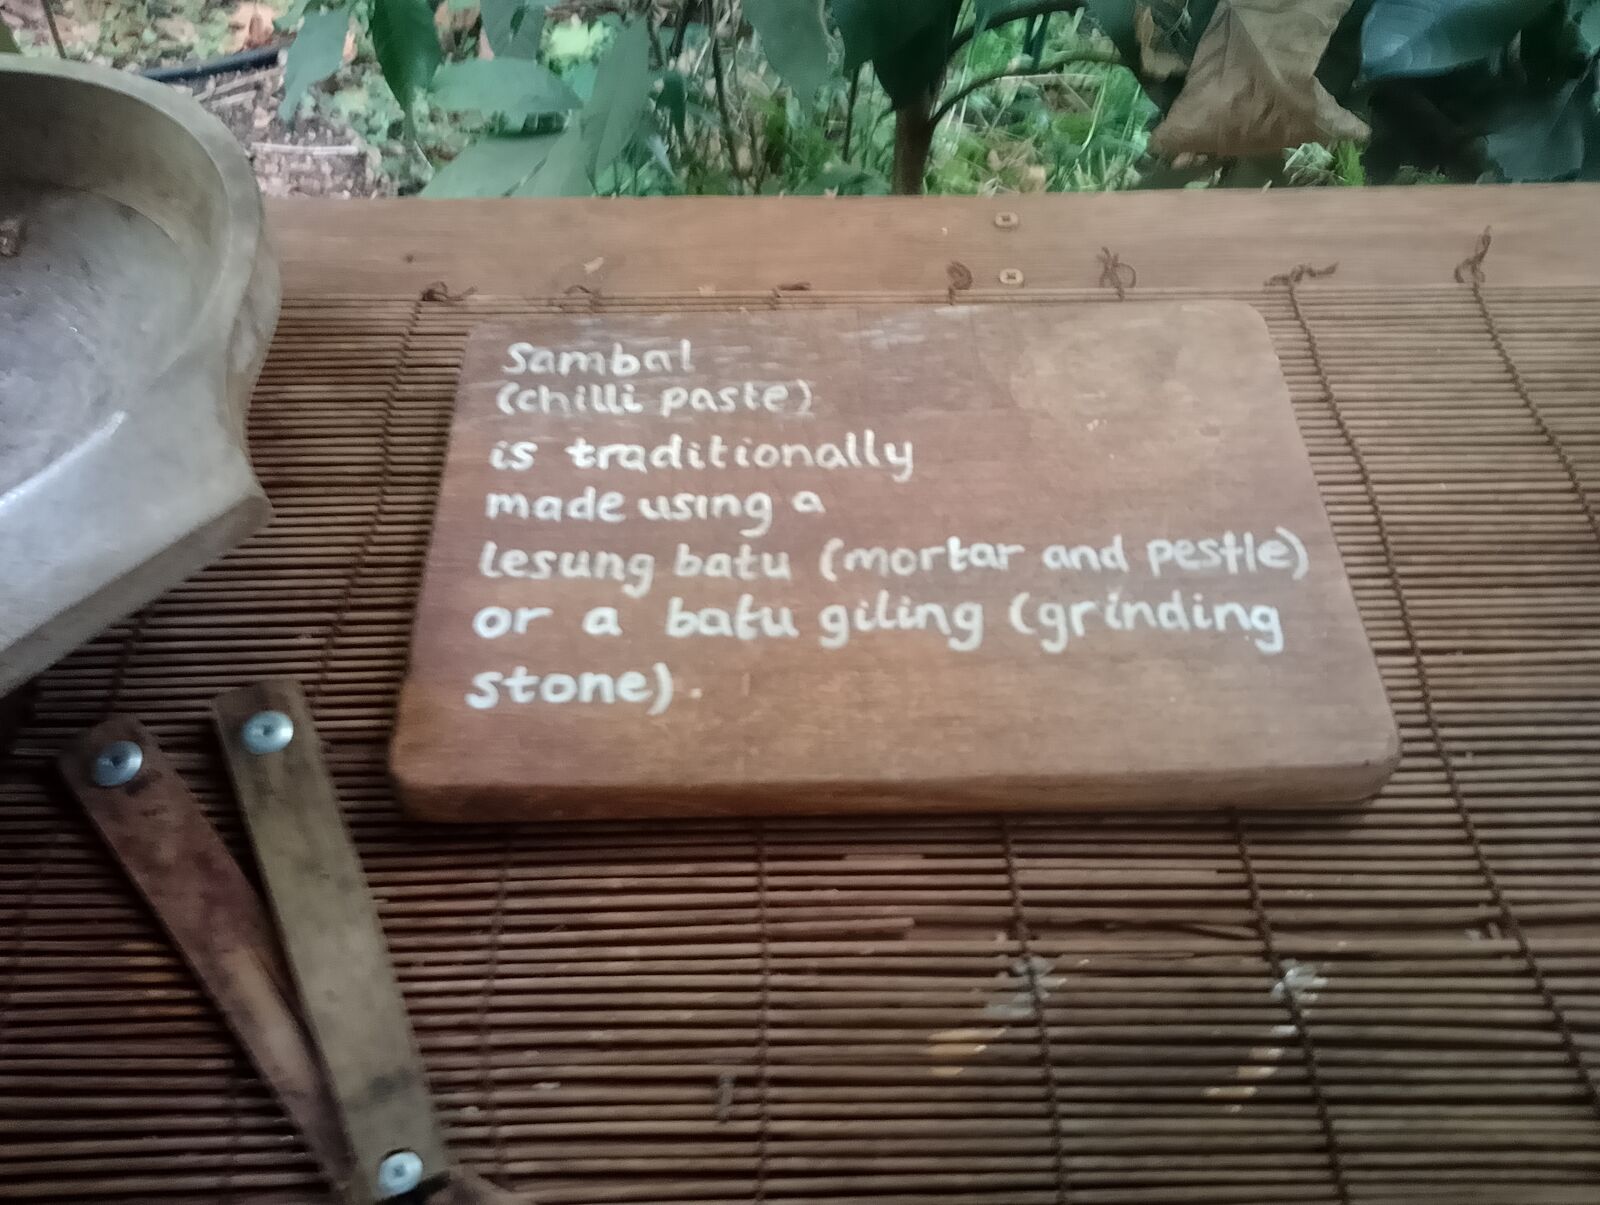 Sambal
(chilli paste)
is traditionally
made using a
lesung batu (mortar and pestle)
or a batu giling (grinding
stone).